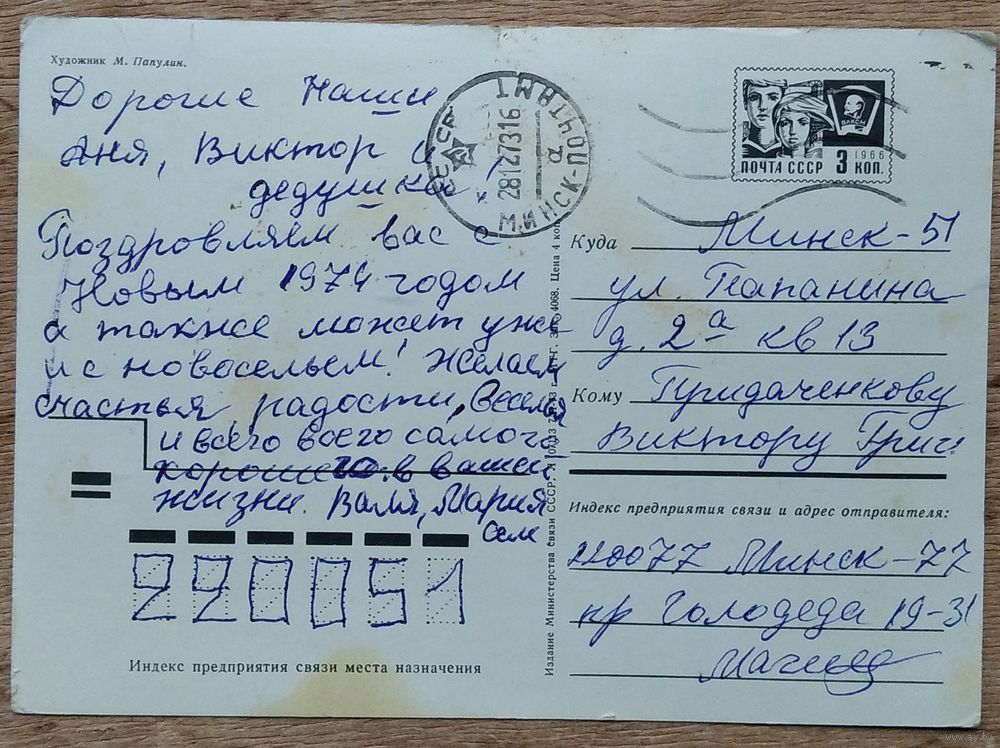 Художник М. Папулин.
Дорогие Наши
Аня, Виктор и
дедушка!
Поздровляем вас с
Новым 1974 годом
а также может уже
и с новосельем! Желаем
счастья, радости, веселья
и всего всего самого
хорошего в вашей
жизни. Валя, Мария
СССР
МИНСК-ПОЧТАМТ
а
28127316
ВЛКСМ
1966
ПОЧТА СССР 3 КОП.
Куда Минск-51
ул. Папанина
д. 2а кв 13
Кому Придаченкову
Виктору Григ.
Индекс предприятия связи и адрес отправителя:
220077 Минск-77
пр Голодеда 19-31
220051
Индекс предприятия связи места назначения
Издание Министерства связи СССР.
4068. Цена 4 коп.
www.ay.by